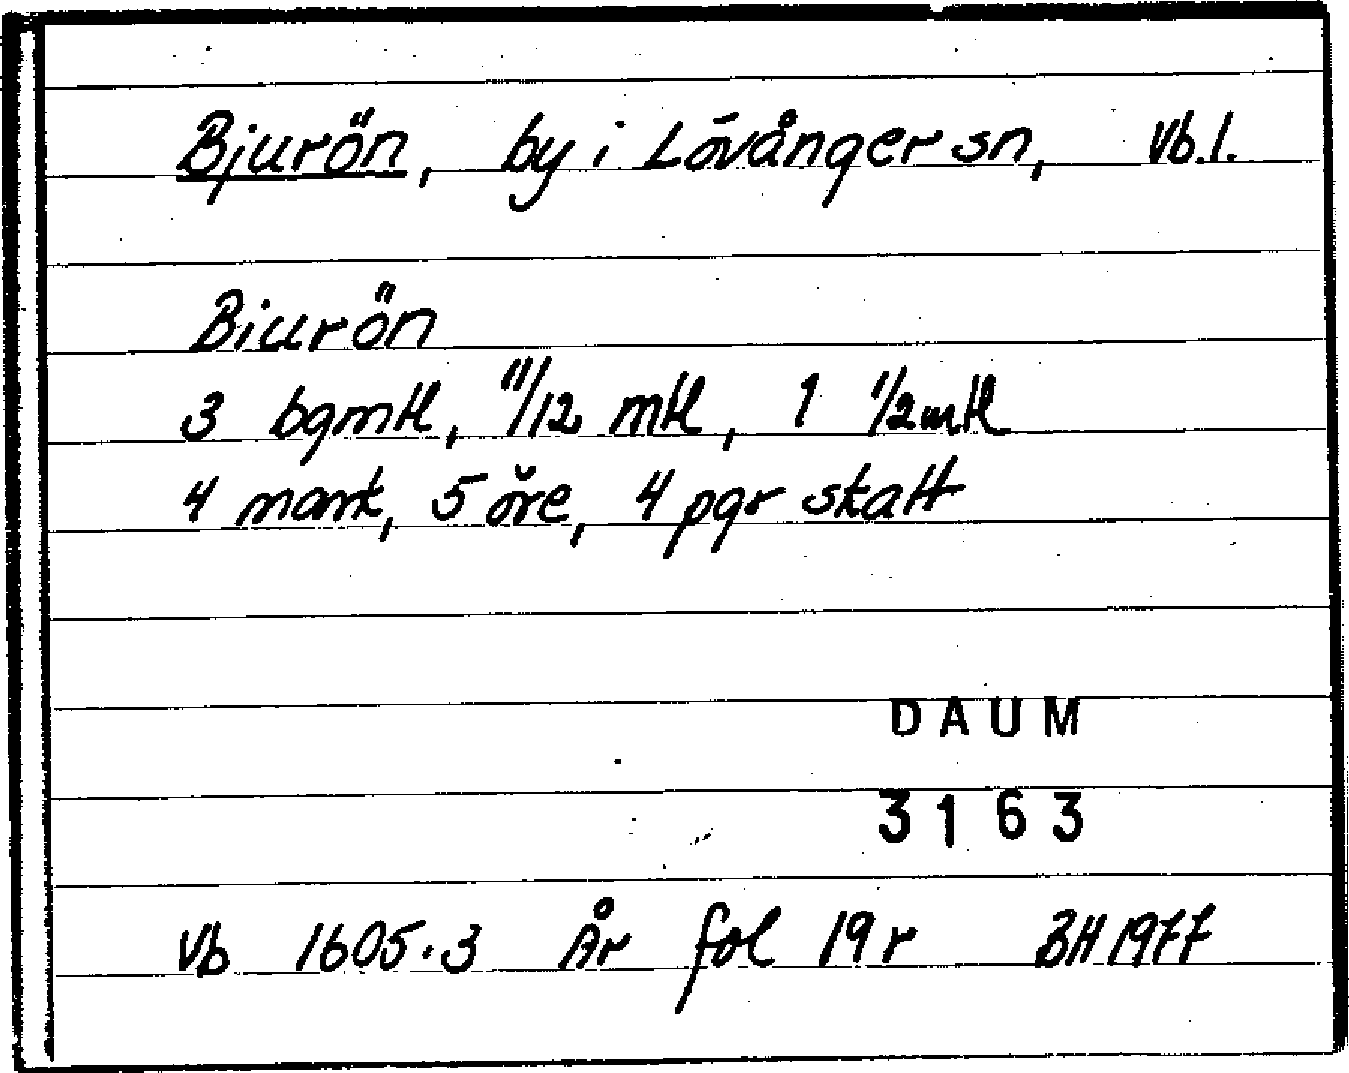 Bjurön, by i Lövånger sn, Vb.l.
Biurön
3 bgmtl, 11/12 mtl, 1 1/2 mtl
4 mark, 5 öre, 4 pgr skatt
DAUM
3163
Vb 1605:3 År fol 19 r BH 1977